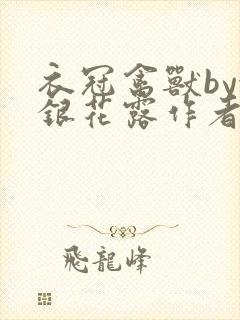 衣冠禽獸by
銀花露作者
飛龍峰